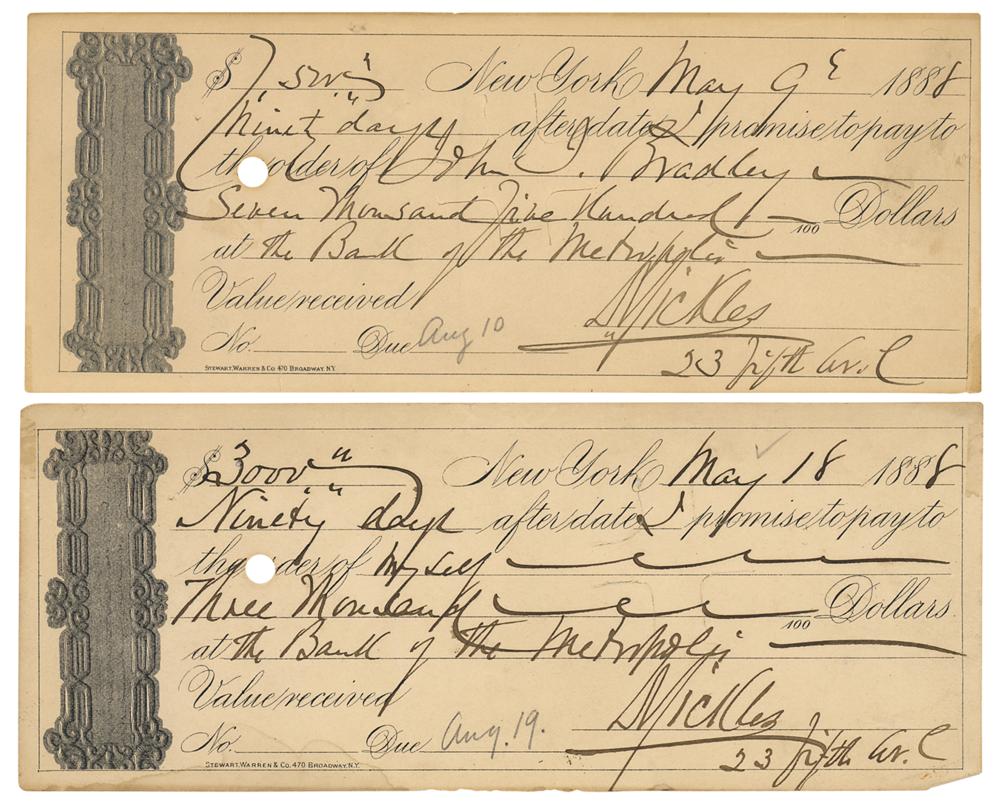 $7,500" New York May 9 1888
Ninety days after date I promise to pay to
the order of John J. Bradley
Seven Thousand Five Hundred /100 Dollars
at the Bank of the Metropolis
Value received DSickles
No. Due Aug 10
23 fifth Av.
STEWART, WARREN & CO. 470 BROADWAY. N.Y.
$3000" New York May 18 1888
Ninety days after date I promise to pay to
the order of myself
Three Thousand /100 Dollars
at the Bank of the Metropolis
Value received DSickles
No. Due Aug. 19.
23 fifth Av.
STEWART, WARREN & CO. 470 BROADWAY. N.Y.